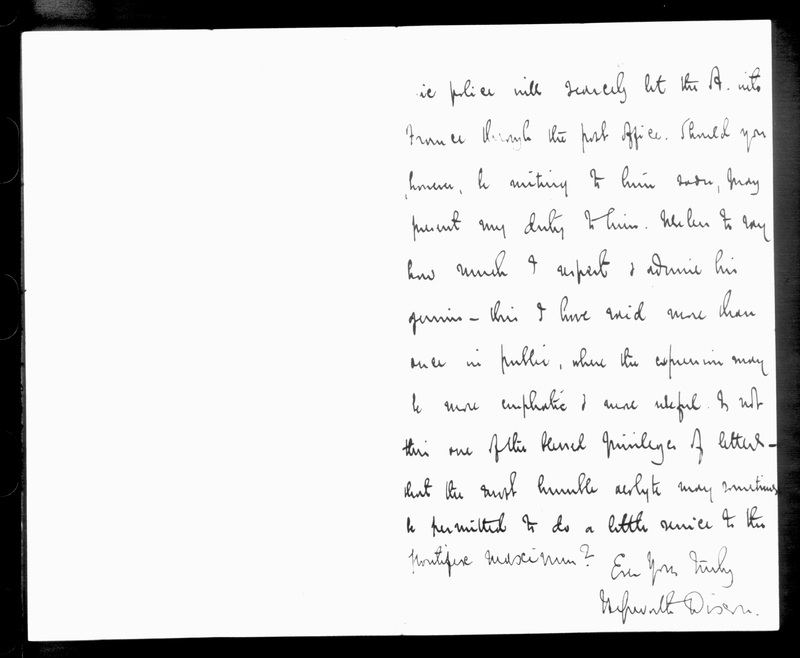 ic police will scarcely let the A. into
France through the post office. Should you
however, be writing to him soon, pray
present my duty to him. Useless to say
how much I respect & admire his
genius – this I have said more than
once in public, where the expression may
be more emphatic & more useful. Is not
this one of the blessed privileges of letters –
that the most humble acolyte may sometimes
be permitted to do a little service to the
pontifex maximus?
Ever Yours Truly
Hepworth Dixon.